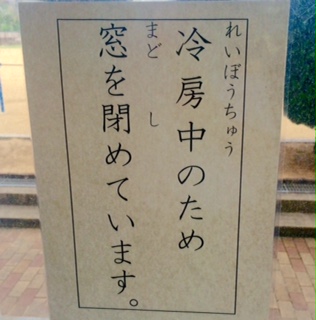 冷房中のため
れいぼうちゅう
窓を閉めています。
まど し